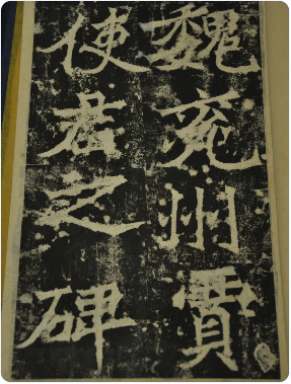 魏兖州賈
使君之碑